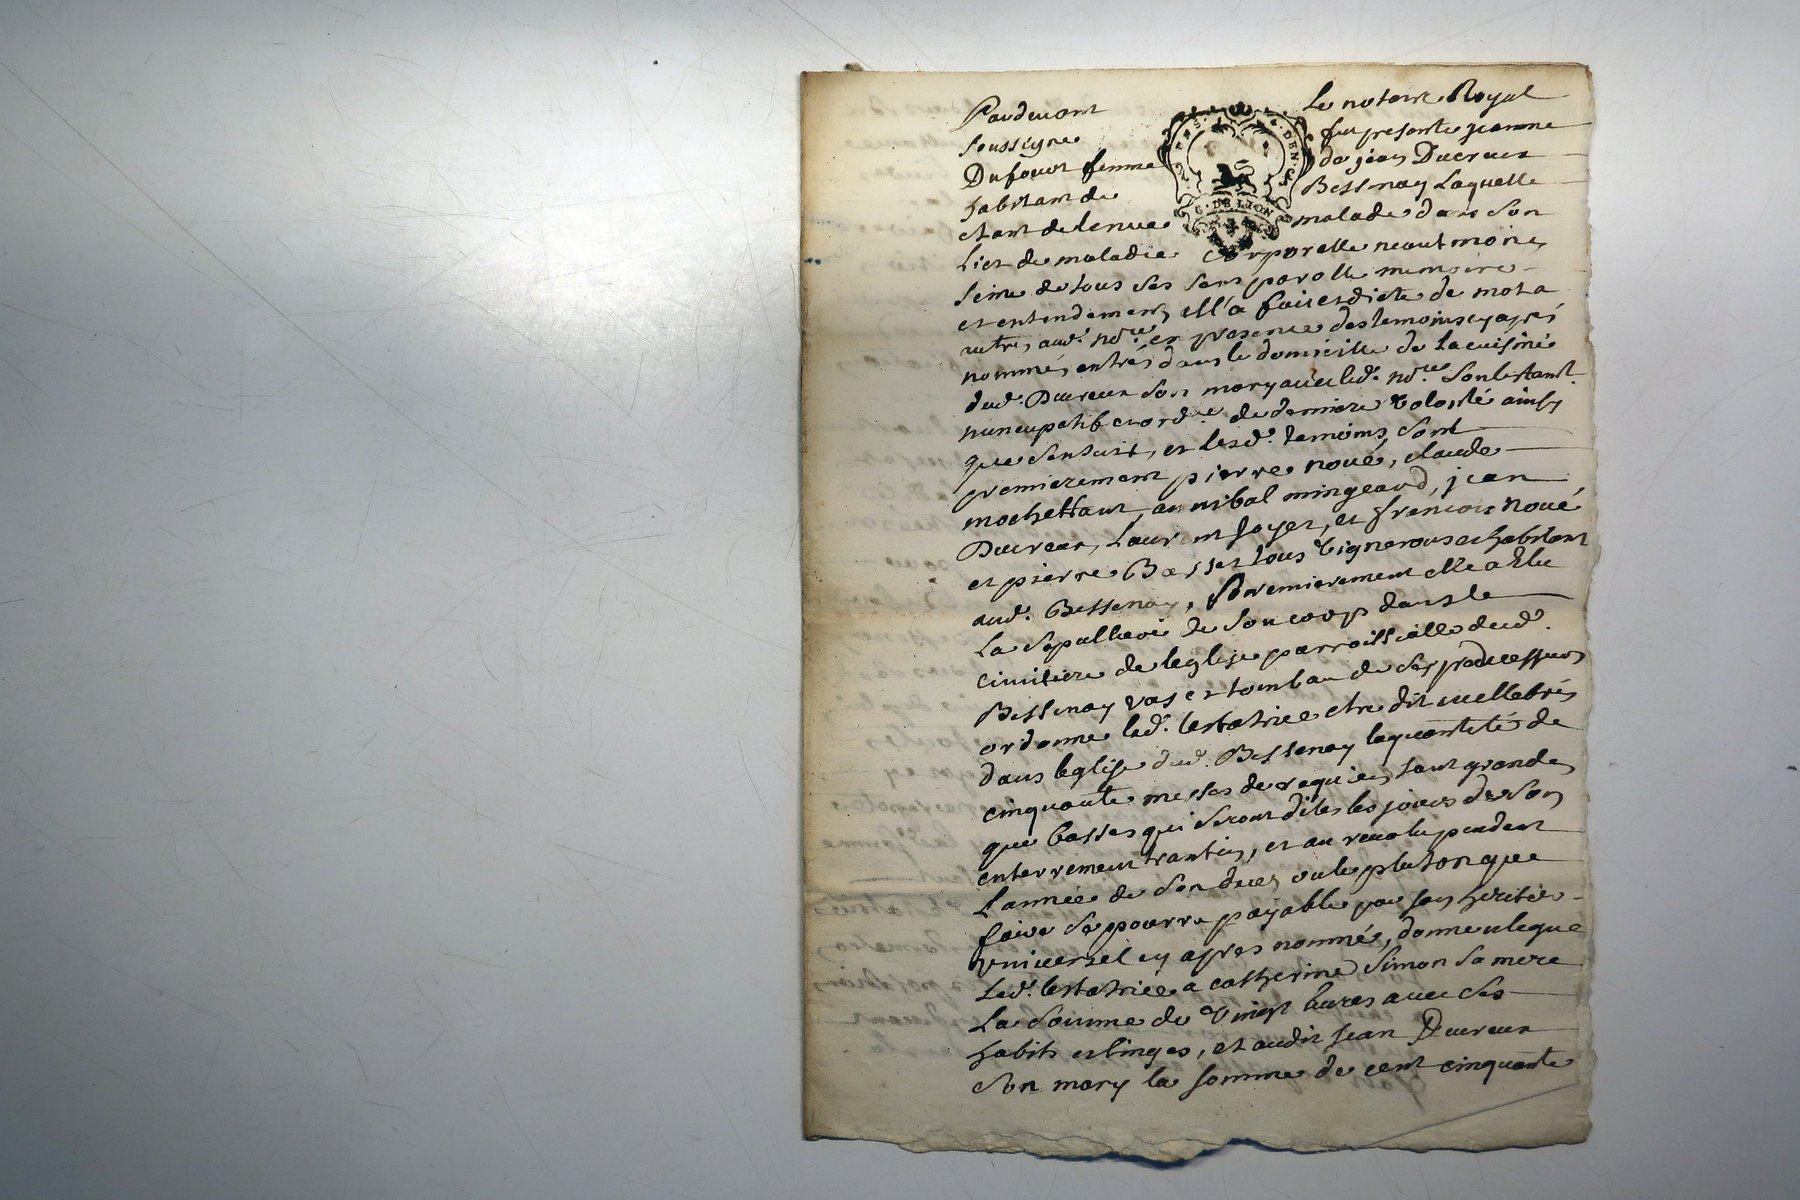 Pardevant Le notaire Royal
soussigné fut présente jeanne
Dufour femme de jean Ducreux
habitant de Bessenay Laquelle
étant detenue malade dans son
G. DE LION
Lict de maladie corporelle neautmoins
seine de tous ses sens parolle memoire
et entendement ell'a fait et dicté de mot a
autre, aud. no.re en presence des temoins cy apres
nommés, entrés dans le domicille de la cuisine
dud. Ducreux son mary avec led. no.re son testam.t
nuncupatif et ord.re de derniere volonté ainsy
que sensuit, et lesd. temoins, sont
premierement pierre noué, claude
mochettant, annibal mingeard, jean
Ducreux, Laurent foyet, et francois noué
et pierre Basset tous vignerons et habitant
aud. Bessenay, Premierement elle a Elu
La sepulture de son corps dans le
cimitiere de leglise parroissialle dud.
Bessenay vas et tombau de ses predecesseurs
ordonne lad. testatrice etre dit et cellebrés
dans leglise dud. Bessenay la quantité de
cinquante messes de requiem tant grandes
que basses qui seront dites les jours de son
enterrement trantin, et au revolu pendant
L'année de son deces ou le plutot que
faire se pourra payable par son heritier
universel cy apres nommé, donne et legue
Lad. testatrice a catherine simon sa mere
La somme de vingt livres avec ses
habits et linges, et audit jean Ducreux
son mary la somme de cent cinquante